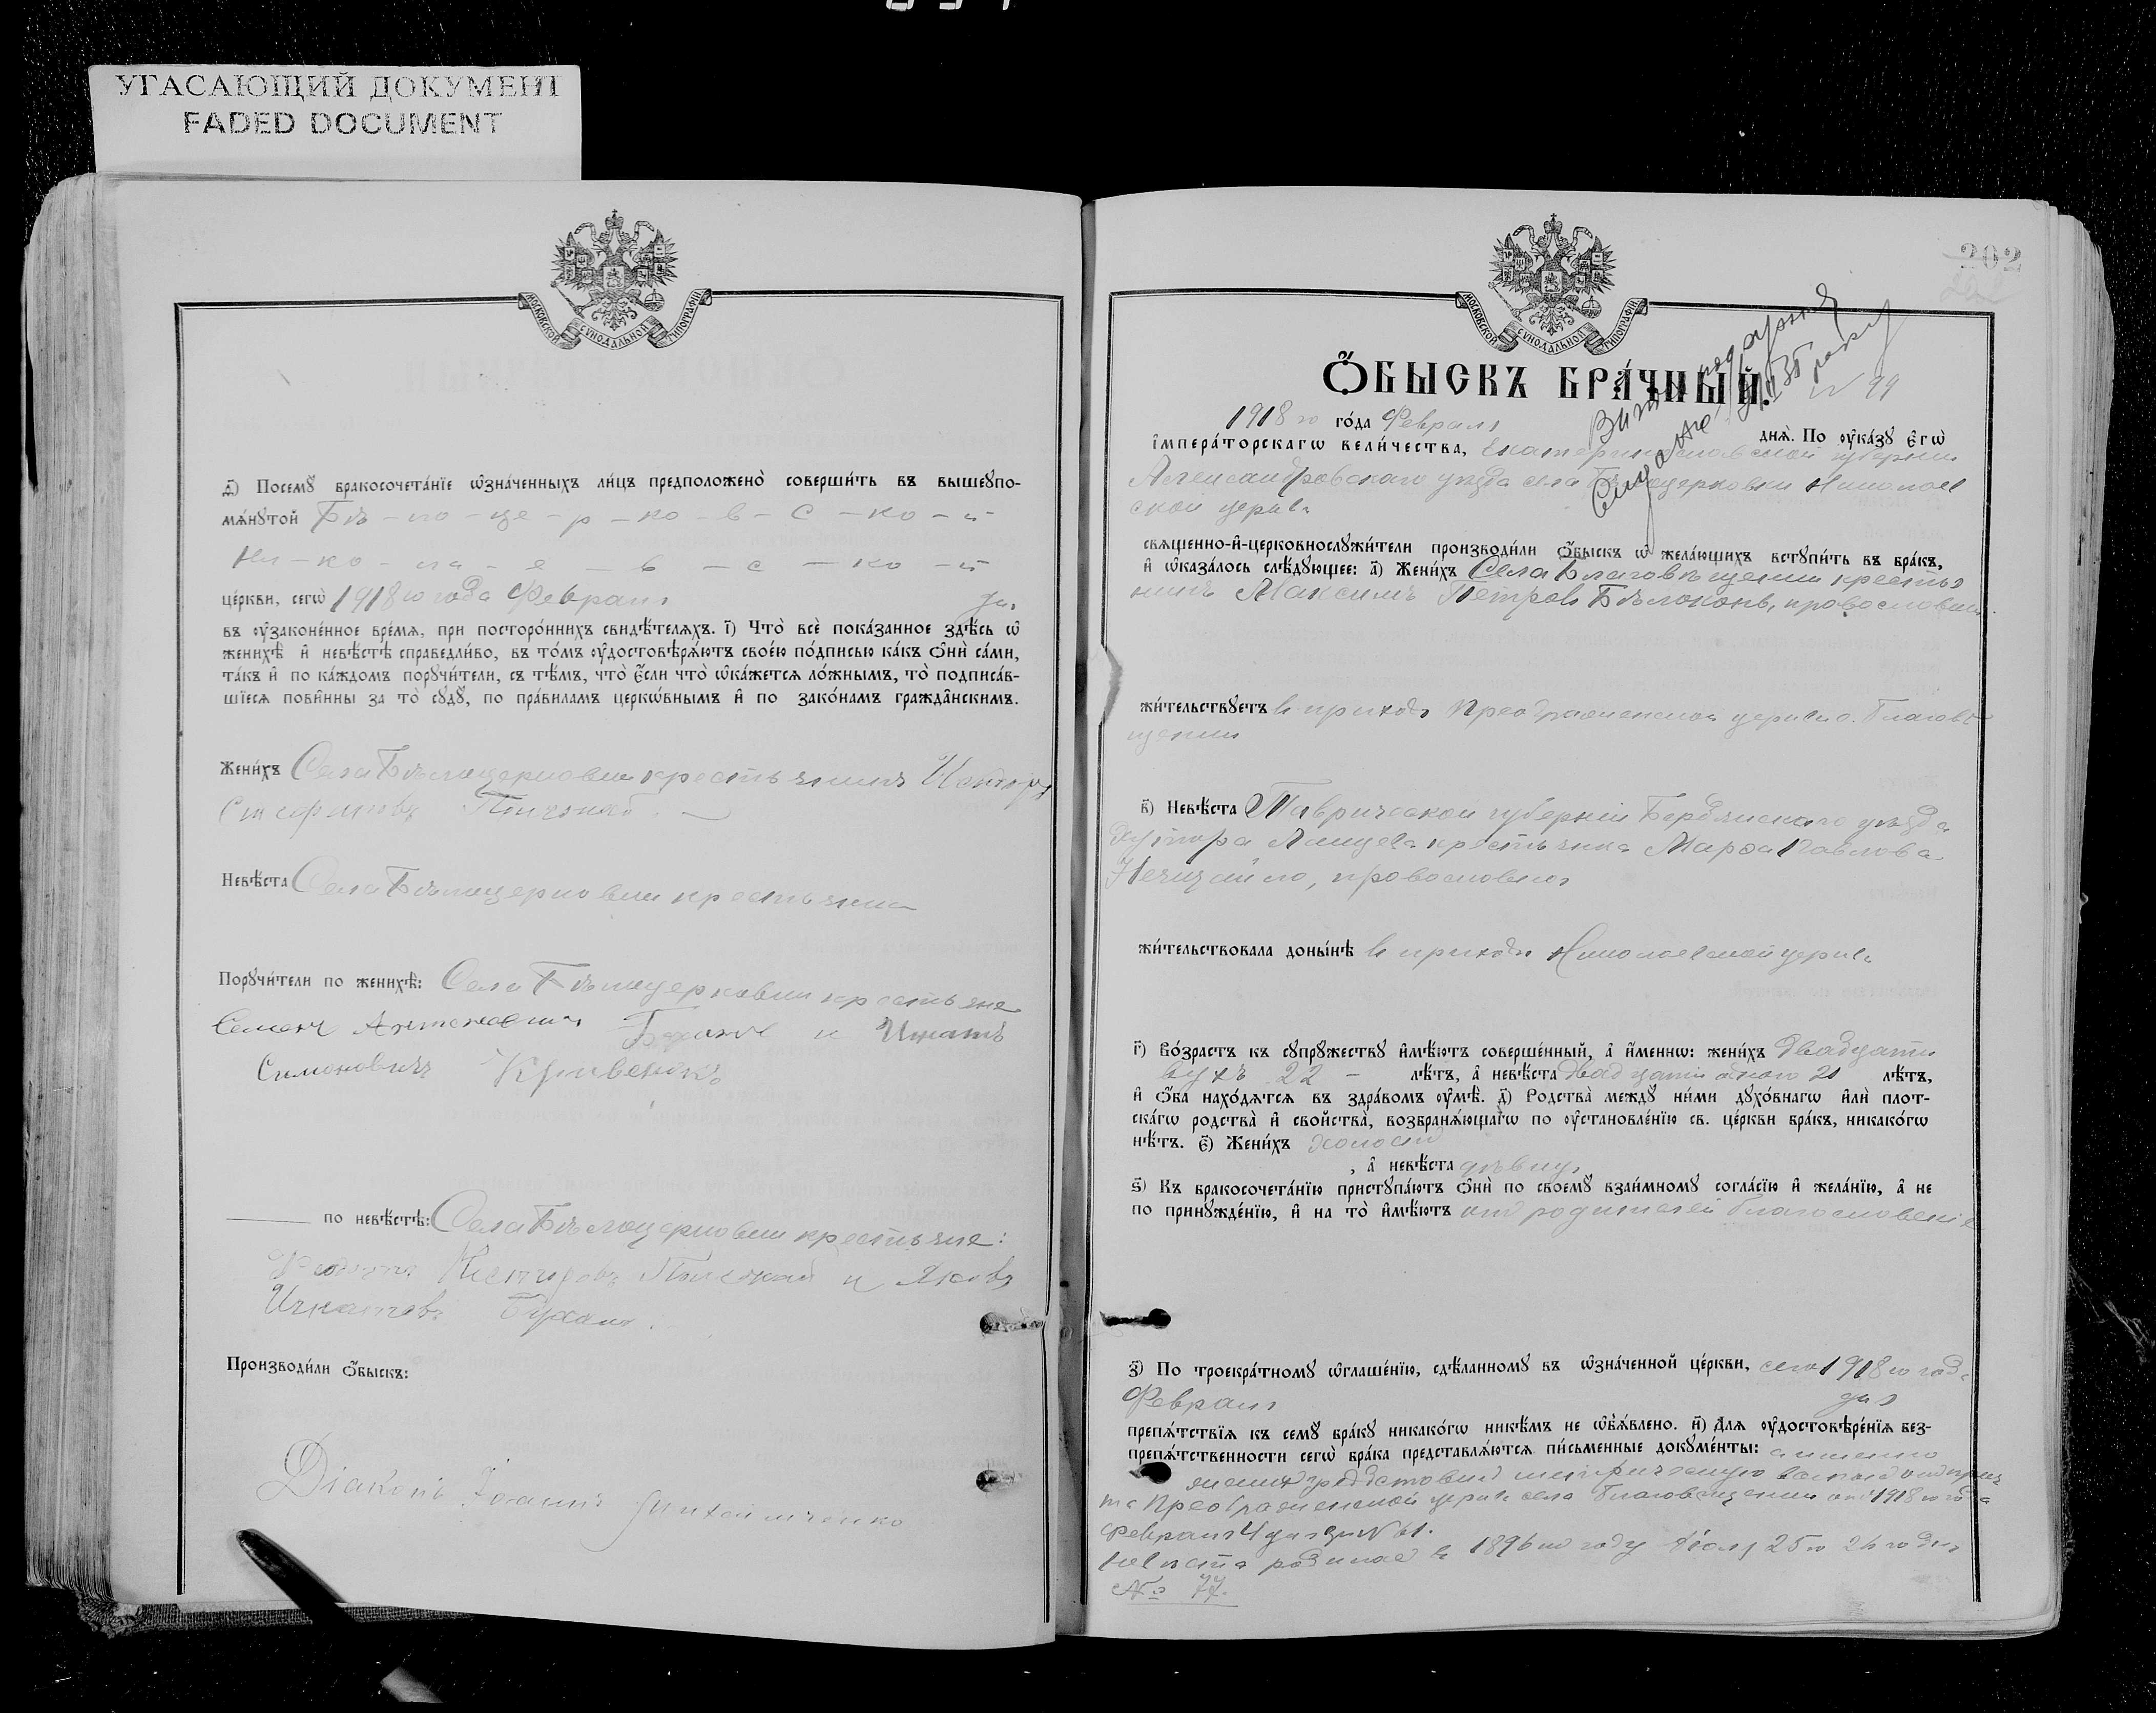 УГАСАЮЩИЙ ДОКУМЕНТ
FADED DOCUMENT
МОСКОВСКОЙ СѴНОДАЛЬНОЙ ТИПОГРАФІИ
д҃) Посемꙋ̀ бракосочета́нїе ѡ҆зна́ченныхъ ли́цъ предположено̀ соверши́ть въ вышеꙋпо-
мѧ́нꙋтой Бѣ-ло-це-р-ко-в-с-ко-й
Ни-ко-ла-е-в-с-ко-й
це́ркви, сегѡ̀ 1918 го года Февраля дня
въ ᲂу҆законе́нное вре́мѧ, при посторо́ннихъ свидѣ́телѧхъ. і҃) Что̀ всѐ пока́занное здѣ́сь ѡ҆
женихѣ̀ и҆ невѣ́стѣ справедли́во, въ то́мъ ᲂу҆достовѣрѧ́ютъ свое́ю по́дписью ка́къ ѻ҆нѝ са́ми,
та́къ и҆ по ка́ждомъ порꙋчи́тели, съ тѣ́мъ, что̀ є҆́сли что̀ ѡ҆ка́жетсѧ ло́жнымъ, то̀ подписа́в-
шїесѧ пови́нны за то̀ сꙋдꙋ̀, по пра́виламъ церкѡ́внымъ и҆ по зако́намъ гражда́нскимъ.
Жени́хъ Села Бѣлоцерковки крестьянинъ
Невѣ́ста Села Бѣлоцерковки крестьянка
Порꙋчи́тели по женихѣ̀: Села Бѣлоцерковки крестьяне
Семенъ и Игнатъ
Симоновичъ Кривенокъ
по невѣ́стѣ: Села Бѣлоцерковки крестьяне:
Несторовъ и Яковъ
Игнатовъ
Производи́ли ѻ҆́быскъ:
Діаконъ Іоаннъ
202
Ѻ҆́БЫСКЪ БРА́ЧНЫЙ.
№ 99
1918 го го́да Февраля днѧ̀. По ᲂу҆ка́зꙋ є҆гѡ̀
і҆мпера́торскагѡ вели́чества, Екатеринославской губерніи
Александровскаго уѣзда села Бѣлоцерковки Николаев
ской церкви
свѧще́нно-и҆-церковнослꙋжи́тели производи́ли ѻ҆́быскъ ѡ҆ жела́ющихъ встꙋпи́ть въ бра́къ,
и҆ ѡ҆каза́лось слѣ́дꙋющее: а҃) Жени́хъ Села Благовѣщенки крестья
нинъ Максимъ Петровъ Бѣлоконь, православный
жи́тельствꙋетъ въ приходѣ Преображенской церкви с. Благовѣ
щенки
в҃) Невѣ́ста Таврической губерніи Бердянскаго уѣзда
хутора крестьянка Марѳа Павлова
Нечитайло, православная
жи́тельствовала доны́нѣ въ приходѣ Николаевской церкви
г҃) Во́зрастъ къ сꙋпрꙋ́жествꙋ и҆мѣ́ютъ соверше́нный, а҆ и҆́меннѡ: жени́хъ двадцати
вухъ 22 - лѣ́тъ, а҆ невѣ́ста двадцати одного 21 лѣ́тъ,
и҆ ѻ҆́ба нахо́дѧтсѧ въ здра́вомъ ᲂу҆мѣ̀. д҃) Родства̀ междꙋ̀ ни́ми дꙋхо́внагѡ и҆лѝ плот-
ска́гѡ родства̀ и҆ свойства̀, возбранѧ́ющагѡ по ᲂу҆становле́нїю св. це́ркви бра́къ, никако́гѡ
нѣ́тъ. є҃) Жени́хъ холостъ
, а҆ невѣ́ста дѣвица
ѕ҃) Къ бракосочета́нїю пристꙋпа́ютъ ѻ҆нѝ по своемꙋ̀ взаи́мномꙋ согла́сїю и҆ жела́нїю, а҆ не
по принꙋжде́нїю, и҆ на то̀ и҆мѣ́ютъ отъ родителей благословеніе
з҃) По троекра́тномꙋ ѡ҆глаше́нїю, сдѣ́ланномꙋ въ ѡ҆зна́ченной це́ркви, сего 1918 го года
Февраля дня
препѧ́тствїѧ къ семꙋ̀ бра́кꙋ никако́гѡ никѣ́мъ не ѡ҆б̾ѧ́влено. и҃) Длѧ̀ ᲂу҆достовѣре́нїѧ без-
препѧ́тственности сегѡ̀ бра́ка представлѧ́ютсѧ пи́сьменные докꙋме́нты: а именно
женихъ представилъ метрическую выпись отъ прич
та Преображенской церкви села Благовѣщенки отъ 1918 го года
Февраля 4 дня за № 61.
Невѣста родилась въ 1896 мъ году Іюля 25 го 26 го дня
№ 77.